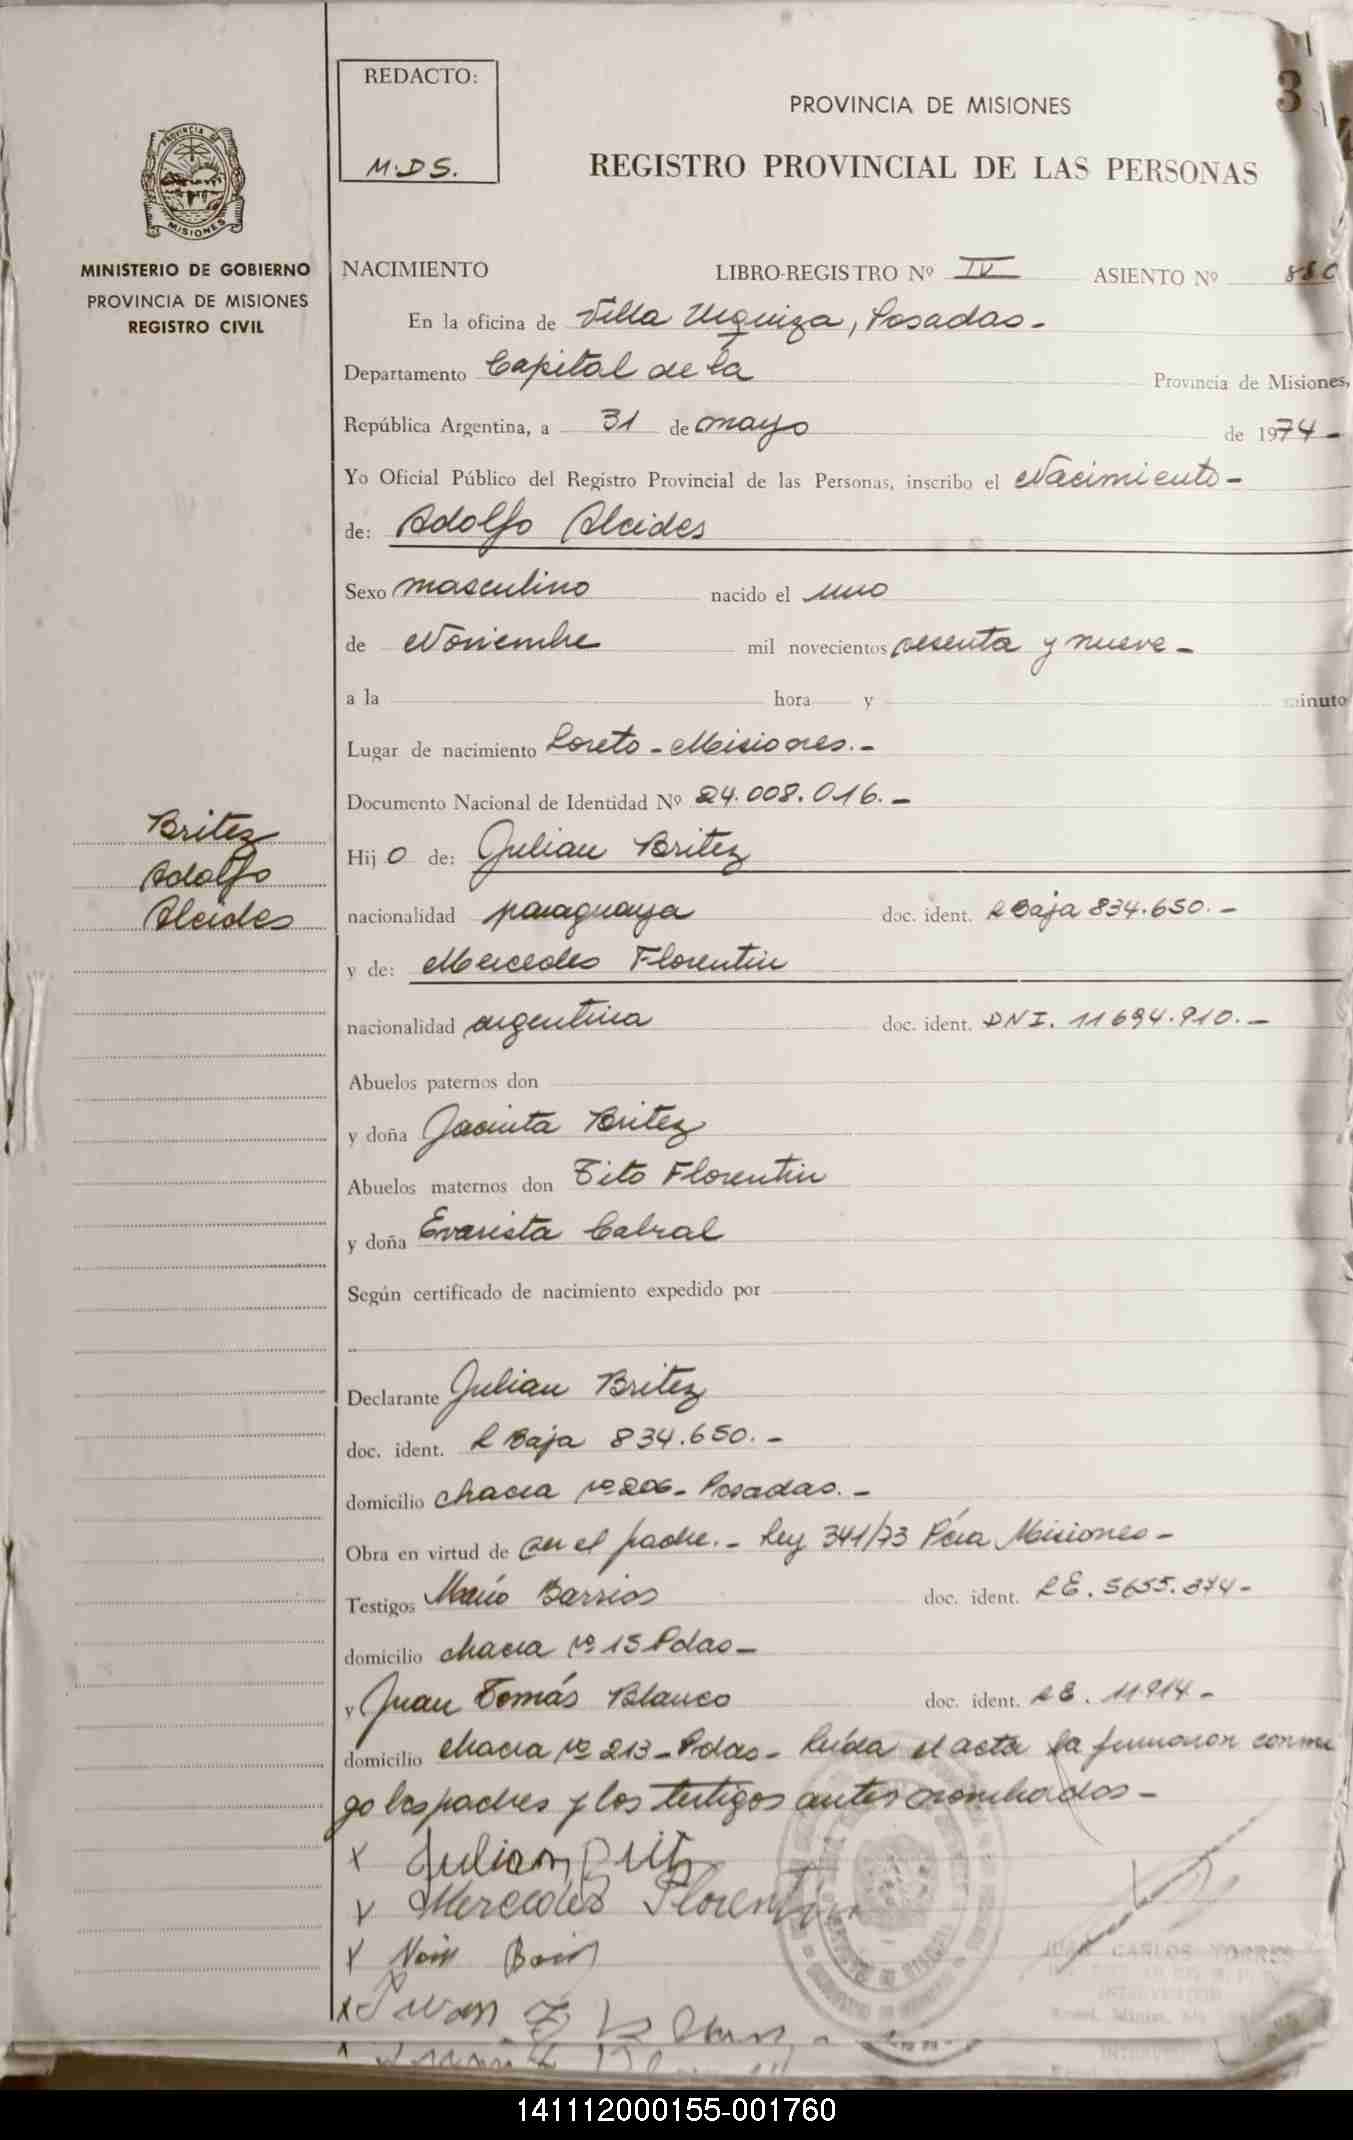 REDACTO:
M.D.S.
PROVINCIA DE MISIONES
REGISTRO PROVINCIAL DE LAS PERSONAS
3
PROVINCIA DE
MISIONES
MINISTERIO DE GOBIERNO
PROVINCIA DE MISIONES
REGISTRO CIVIL
NACIMIENTO LIBRO-REGISTRO Nº IV ASIENTO Nº 880
En la oficina de Villa Urquiza, Posadas -
Departamento Capital de la Provincia de Misiones,
República Argentina, a 31 de mayo de 1974 -
Yo Oficial Público del Registro Provincial de las Personas, inscribo el Nacimiento -
de: Adolfo Alcides
Sexo masculino nacido el uno
de Noviembre mil novecientos sesenta y nueve -
a la hora y minuto
Lugar de nacimiento Loreto - Misiones. -
Documento Nacional de Identidad Nº 24.008.016. -
Britez
Adolfo
Alcides
Hijo de: Julian Britez
nacionalidad paraguaya doc. ident. R Baja 834.650. -
y de: Mercedes Florentin
nacionalidad argentina doc. ident. DNI. 11694.910. -
Abuelos paternos don
y doña Jacinta Britez
Abuelos maternos don Tito Florentin
y doña Evarista Cabral
Según certificado de nacimiento expedido por
Declarante Julian Britez
doc. ident. R Baja 834.650. -
domicilio chacra nº 206 - Posadas. -
Obra en virtud de ser el padre. - Ley 341/73 Pcia Misiones -
Testigos Mario Barrios doc. ident. LE. 5655.374 -
domicilio chacra nº 15 Pdas -
y Juan Tomás Blanco doc. ident. LE. 11914 -
domicilio chacra nº 213 - Pdas - Leída el acta la firmaron conmi
go los padres y los testigos antes nombrados -
x Julian Brit
x Mercedes Florentin
x
x Juan T Blanco
JUAN CARLOS TORRES
141112000155-001760